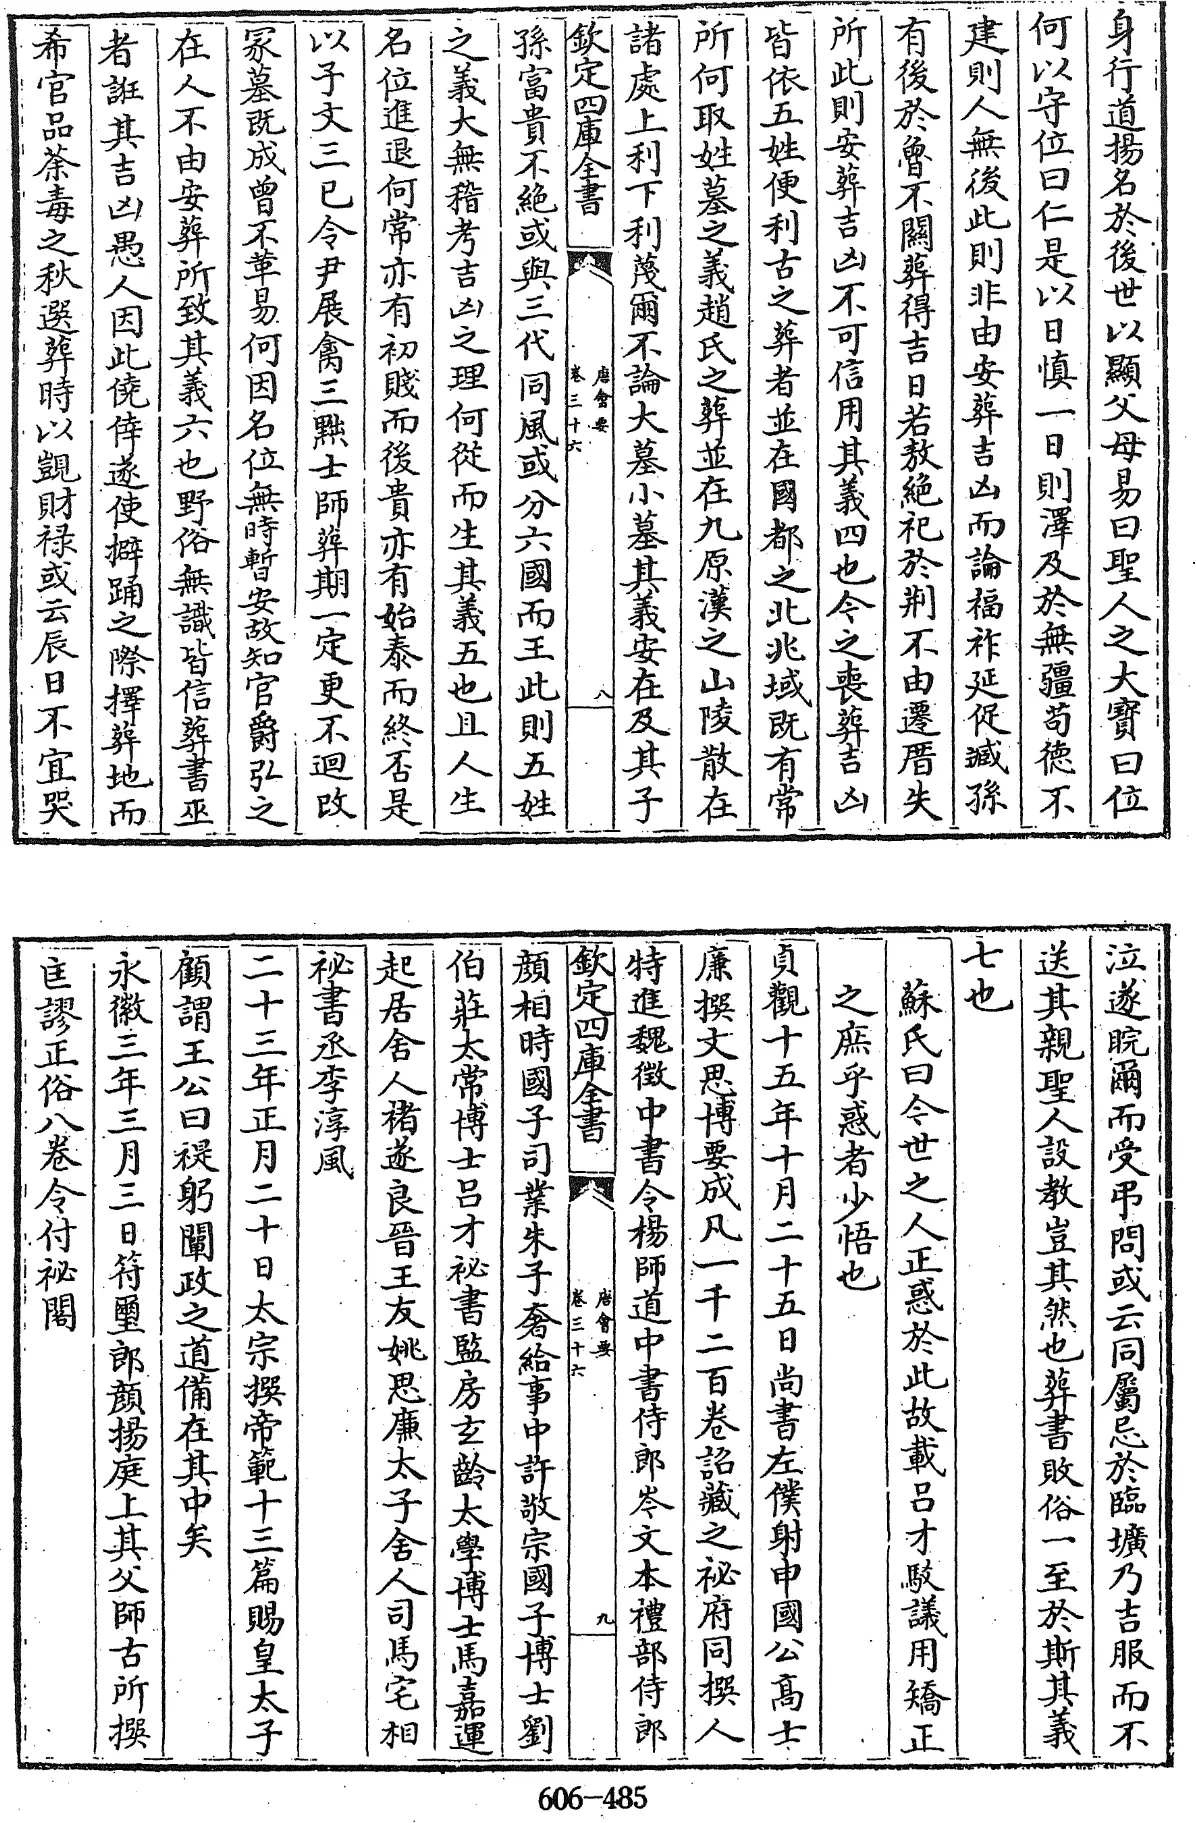 身行道揚名於後世以顯父母易曰聖人之大寳曰位
何以守位曰仁是以日慎一日則澤及於無疆苟德不
建則人無後此則非由安葬吉凶而論福祚延促臧孫
有後於魯不關葬得吉日若敖絶祀於荆不由遷厝失
所此則安葬吉凶不可信用其義四也今之喪葬吉凶
皆依五姓便利古之葬者並在國都之北兆域既有常
所何取姓墓之義趙氏之葬並在九原漢之山陵散在
諸處上利下利蔑爾不論大墓小墓其義安在及其子
欽定四庫全書
唐會要
卷三十六
八
孫富貴不絶或與三代同風或分六國而王此則五姓
之義大無稽考吉凶之理何從而生其義五也且人生
名位進退何常亦有初賤而後貴亦有始泰而終否是
以子文三已令尹展禽三黜士師葬期一定更不迴改
冢墓既成曾不革易何因名位無時暫安故知官爵弘之
在人不由安葬所致其義六也野俗無識皆信葬書巫
者誑其吉凶愚人因此僥倖遂使擗踊之際擇葬地而
希官品荼毒之秋選葬時以覬財禄或云辰日不宜哭
泣遂睆爾而受弔問或云同屬忌於臨壙乃吉服而不
送其親聖人設教豈其然也葬書敗俗一至於斯其義
七也
蘇氏曰今世之人正惑於此故載吕才駁議用矯正
之庶乎惑者少悟也
貞觀十五年十月二十五日尚書左僕射申國公髙士
廉撰文思博要成凡一千二百卷詔藏之祕府同撰人
特進魏徵中書令楊師道中書侍郎岑文本禮部侍郎
欽定四庫全書
唐會要
卷三十六
九
顔相時國子司業朱子奢給事中許敬宗國子博士劉
伯莊太常博士吕才祕書監房玄齡太學博士馬嘉運
起居舍人褚遂良晉王友姚思廉太子舍人司馬宅相
祕書丞李淳風
二十三年正月二十日太宗撰帝範十三篇賜皇太子
顧謂王公曰禔躬闡政之道備在其中矣
永徽三年三月三日符璽郎顔揚庭上其父師古所撰
匡謬正俗八卷令付祕閣
606-485